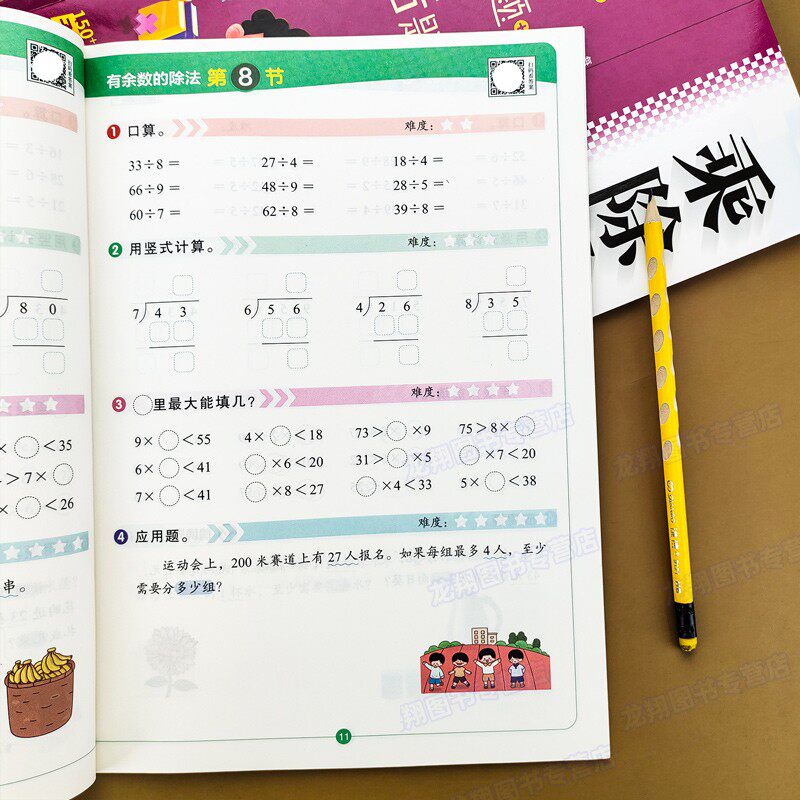 150+
有余数的除法 第8节
扫码看答案
1 口算。 难度：
33÷8＝ 27÷4＝ 18÷4＝
66÷9＝ 48÷9＝ 28÷5＝
60÷7＝ 62÷8＝ 39÷8＝
2 用竖式计算。 难度：
80
7 43 6 56 4 26 8 35
3 ○里最大能填几？ 难度：
9×○<55 4×○<18 73>○×9 75>8×○
6×○<41 ○×6<20 31>○×5 ○×7<20
7×○<41 ○×8<27 ○×4<33 5×○<38
×○<35
>7×○
×○<26
4 应用题。 难度：
运动会上，200米赛道上有27人报名。如果每组最多4人，至少
需要分多少组？
串。
11
乘除
龙翔图书专营店